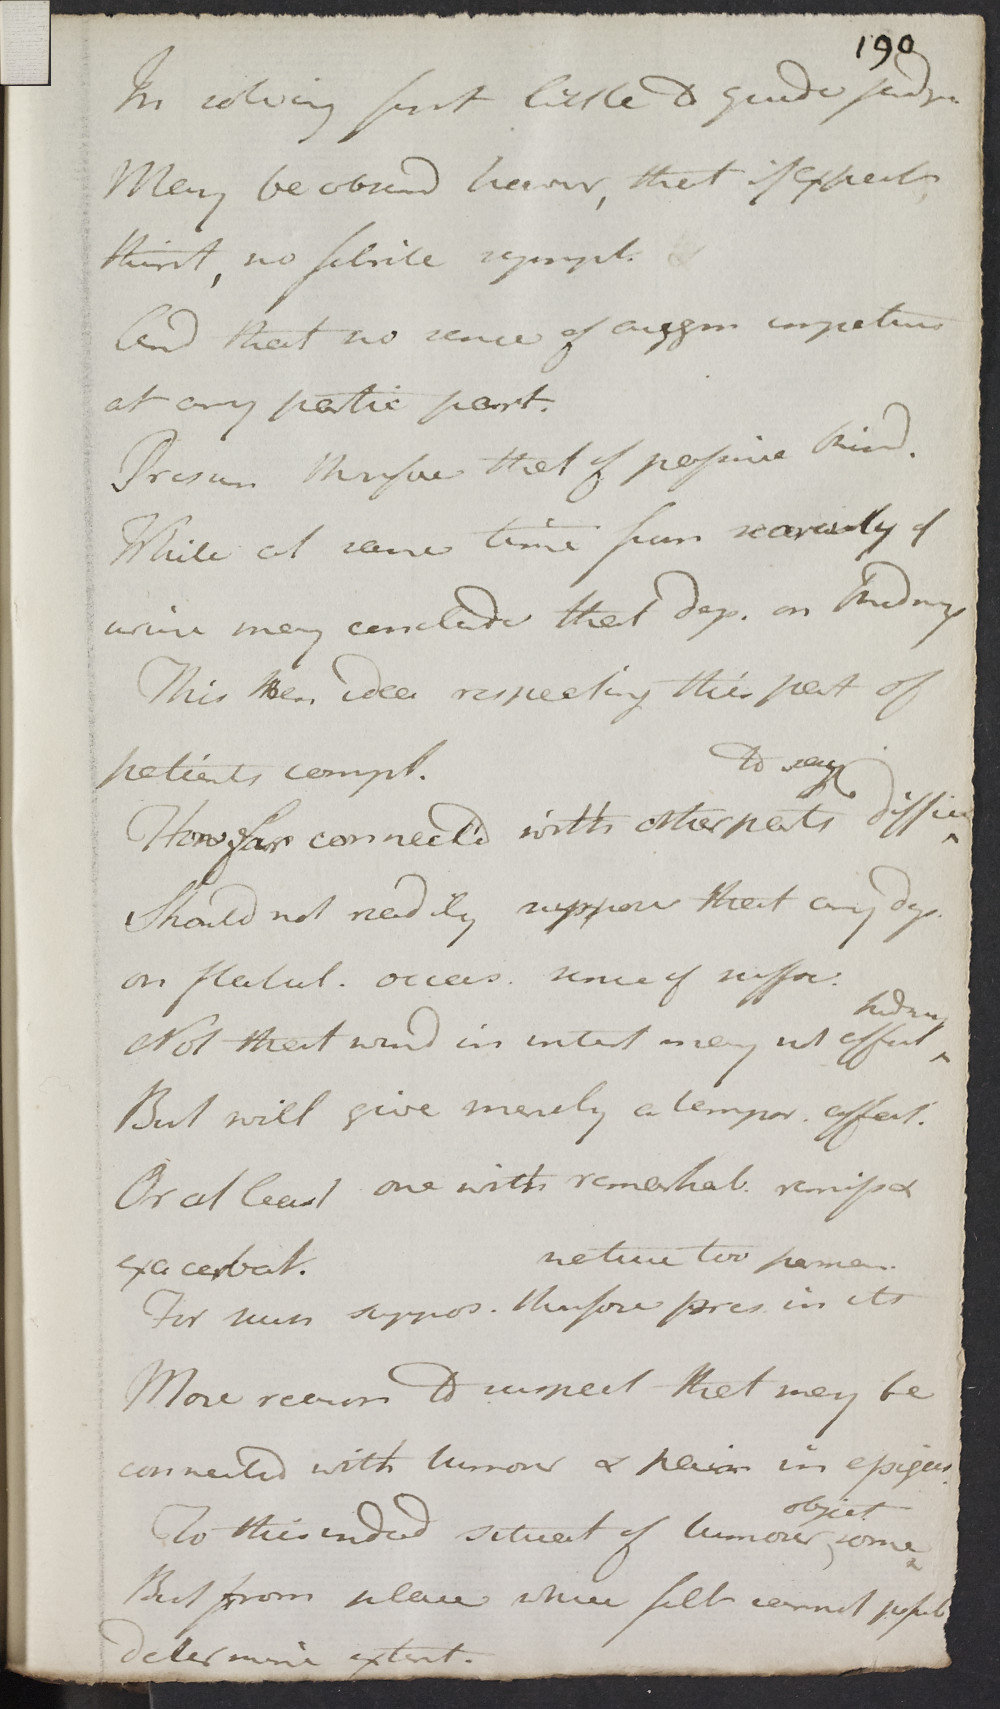 190
In solving first little to guide judgm
May be obsevd howevr, that if except
thirst, no febrile sympt. &
And that no sence of augm impetus
at any partic part.
Presum therefore that of passive kind.
While at same time from scarcity of
urine may conclude that dep. on kidney
This then idea respecting this part of
patients compl.
to say
How far connected with other parts difficu
Should not readily suppose that any dep.
on flatul. occas. sence of suffoc.
kidney
Not that wind in intest may not affect
But will give merely a tempor. affect.
Or at least one with remarkab. remiss &
exacerbat.
nature too perman.
For such suppos. therefore pres. in its
More reason to suspect that may be
connected with tumour & pain in epigas.
object
To this indeed situat of tumour, some
But from place where felt cannot possib
determine extent.